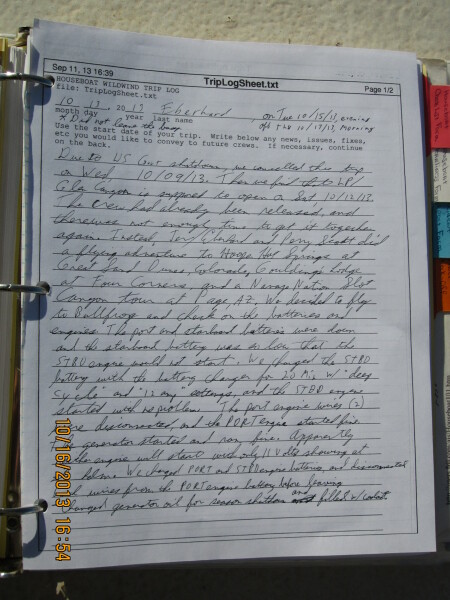 Sep 11, 13 16:39
TripLogSheet.txt
Page 1/2
HOUSEBOAT WILDWIND TRIP LOG
file: TripLogSheet.txt
10 13 2013 Eberhard on Tue 10/15/13, evening
month day year last name off Thu 10/17/13, morning
* Did not leave the buoy
Use the start date of your trip. Write below any news, issues, fixes,
etc you would like to convey to future crews. If necessary, continue
on the back.
Due to US Govt shutdown, we cancelled this trip
on Wed 10/09/13. Then we find that LP/
Glen Canyon is supposed to open on Sat 10/12/13.
The crew had already been released, and
there was not enough time to get it together
again. Instead, Eberhard and Scott did
a flying adventure to Springs at
Great Sand Dunes, Colorado, Gouldings Lodge
at Four Corners and a Navajo Nation Slot
Canyon tour at Page, AZ. We decided to fly
to Bullfrog and check on the batteries and
engines. The port and starboard batteries were down
and the starboard battery was so low that the
STBD engine would not start. We charged the STBD
battery with the battery charger for 20 Min W "deep
cycle" and "12 amp settings, and the STBD engine
started with no problem. The port engine wires (2)
were disconnected, and the PORT engine started fine.
The generator started and ran fine. Apparently
the engine will start with only 11 Volts showing at
helm. We charged PORT and STBD engine batteries, and disconnected
wires from the PORT engine battery before leaving
Changed generator oil for season shutdown and filled w/
10/16/2013 16:54